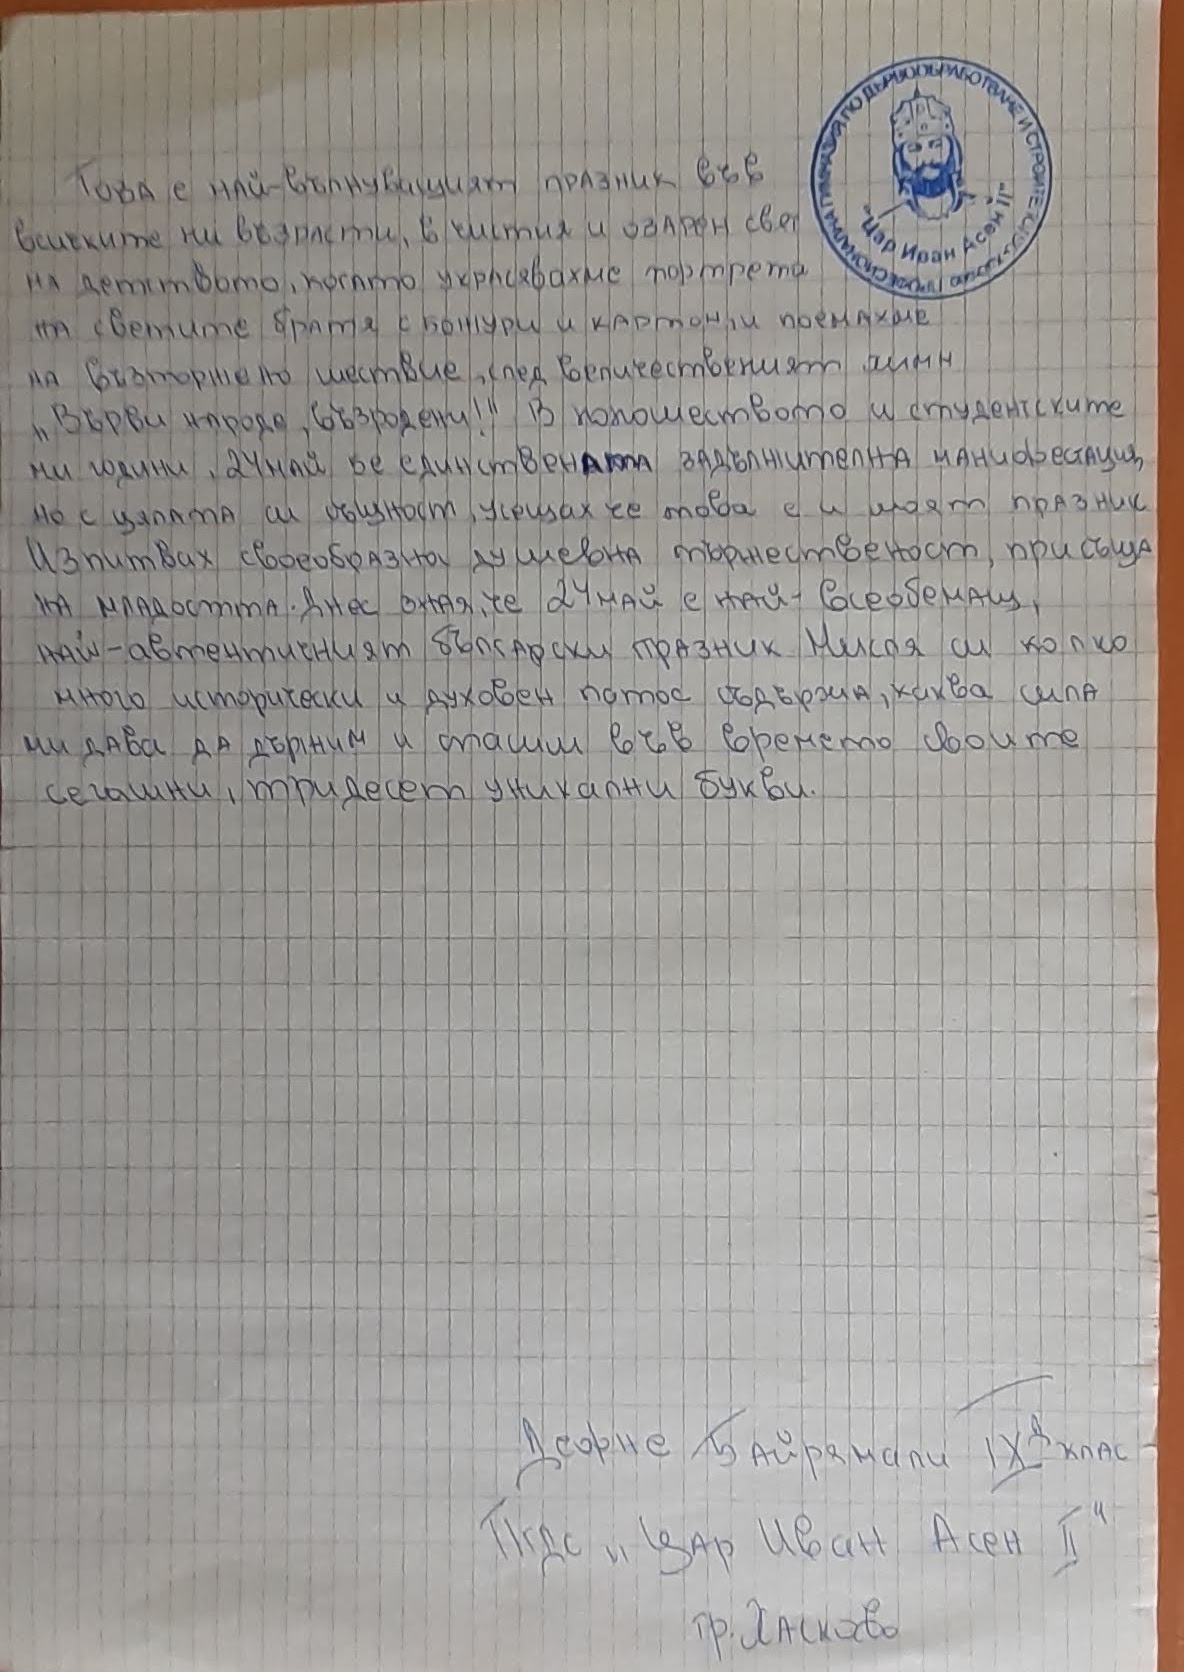 ПРОФЕСИОНАЛНА ГИМНАЗИЯ ПО ДЪРВООБРАБОТВАНЕ И СТРОИТЕЛСТВО
"Цар Иван Асен II"
Това е най-вълнуващият празник във
всичките ни възрасти, в чистия и озарен свят
на детството, когато украсявахме портрета
на светите братя с божури и картони поемахме
на възторжено шествие, след величественият химн
„Върви народе, възродени!" В юношеството и студентските
ми години, 24 май бе единствената задължителна манифестация,
но с цялата си същност, усещах че това е и моят празник
Изпитвах своеобразна душевна тържественост, присъща
на младостта. Днес зная, че 24 май е най-всеобемащ,
най-автентичният български празник Мисля си колко
много исторически и духовен патос съдържа, каква сила
ми дава да държим и опазим във времето своите
сегашни, тридесет уникални букви.
Байрямали IX д клас
ПГДС „Цар Иван Асен II"
гр. Хасково